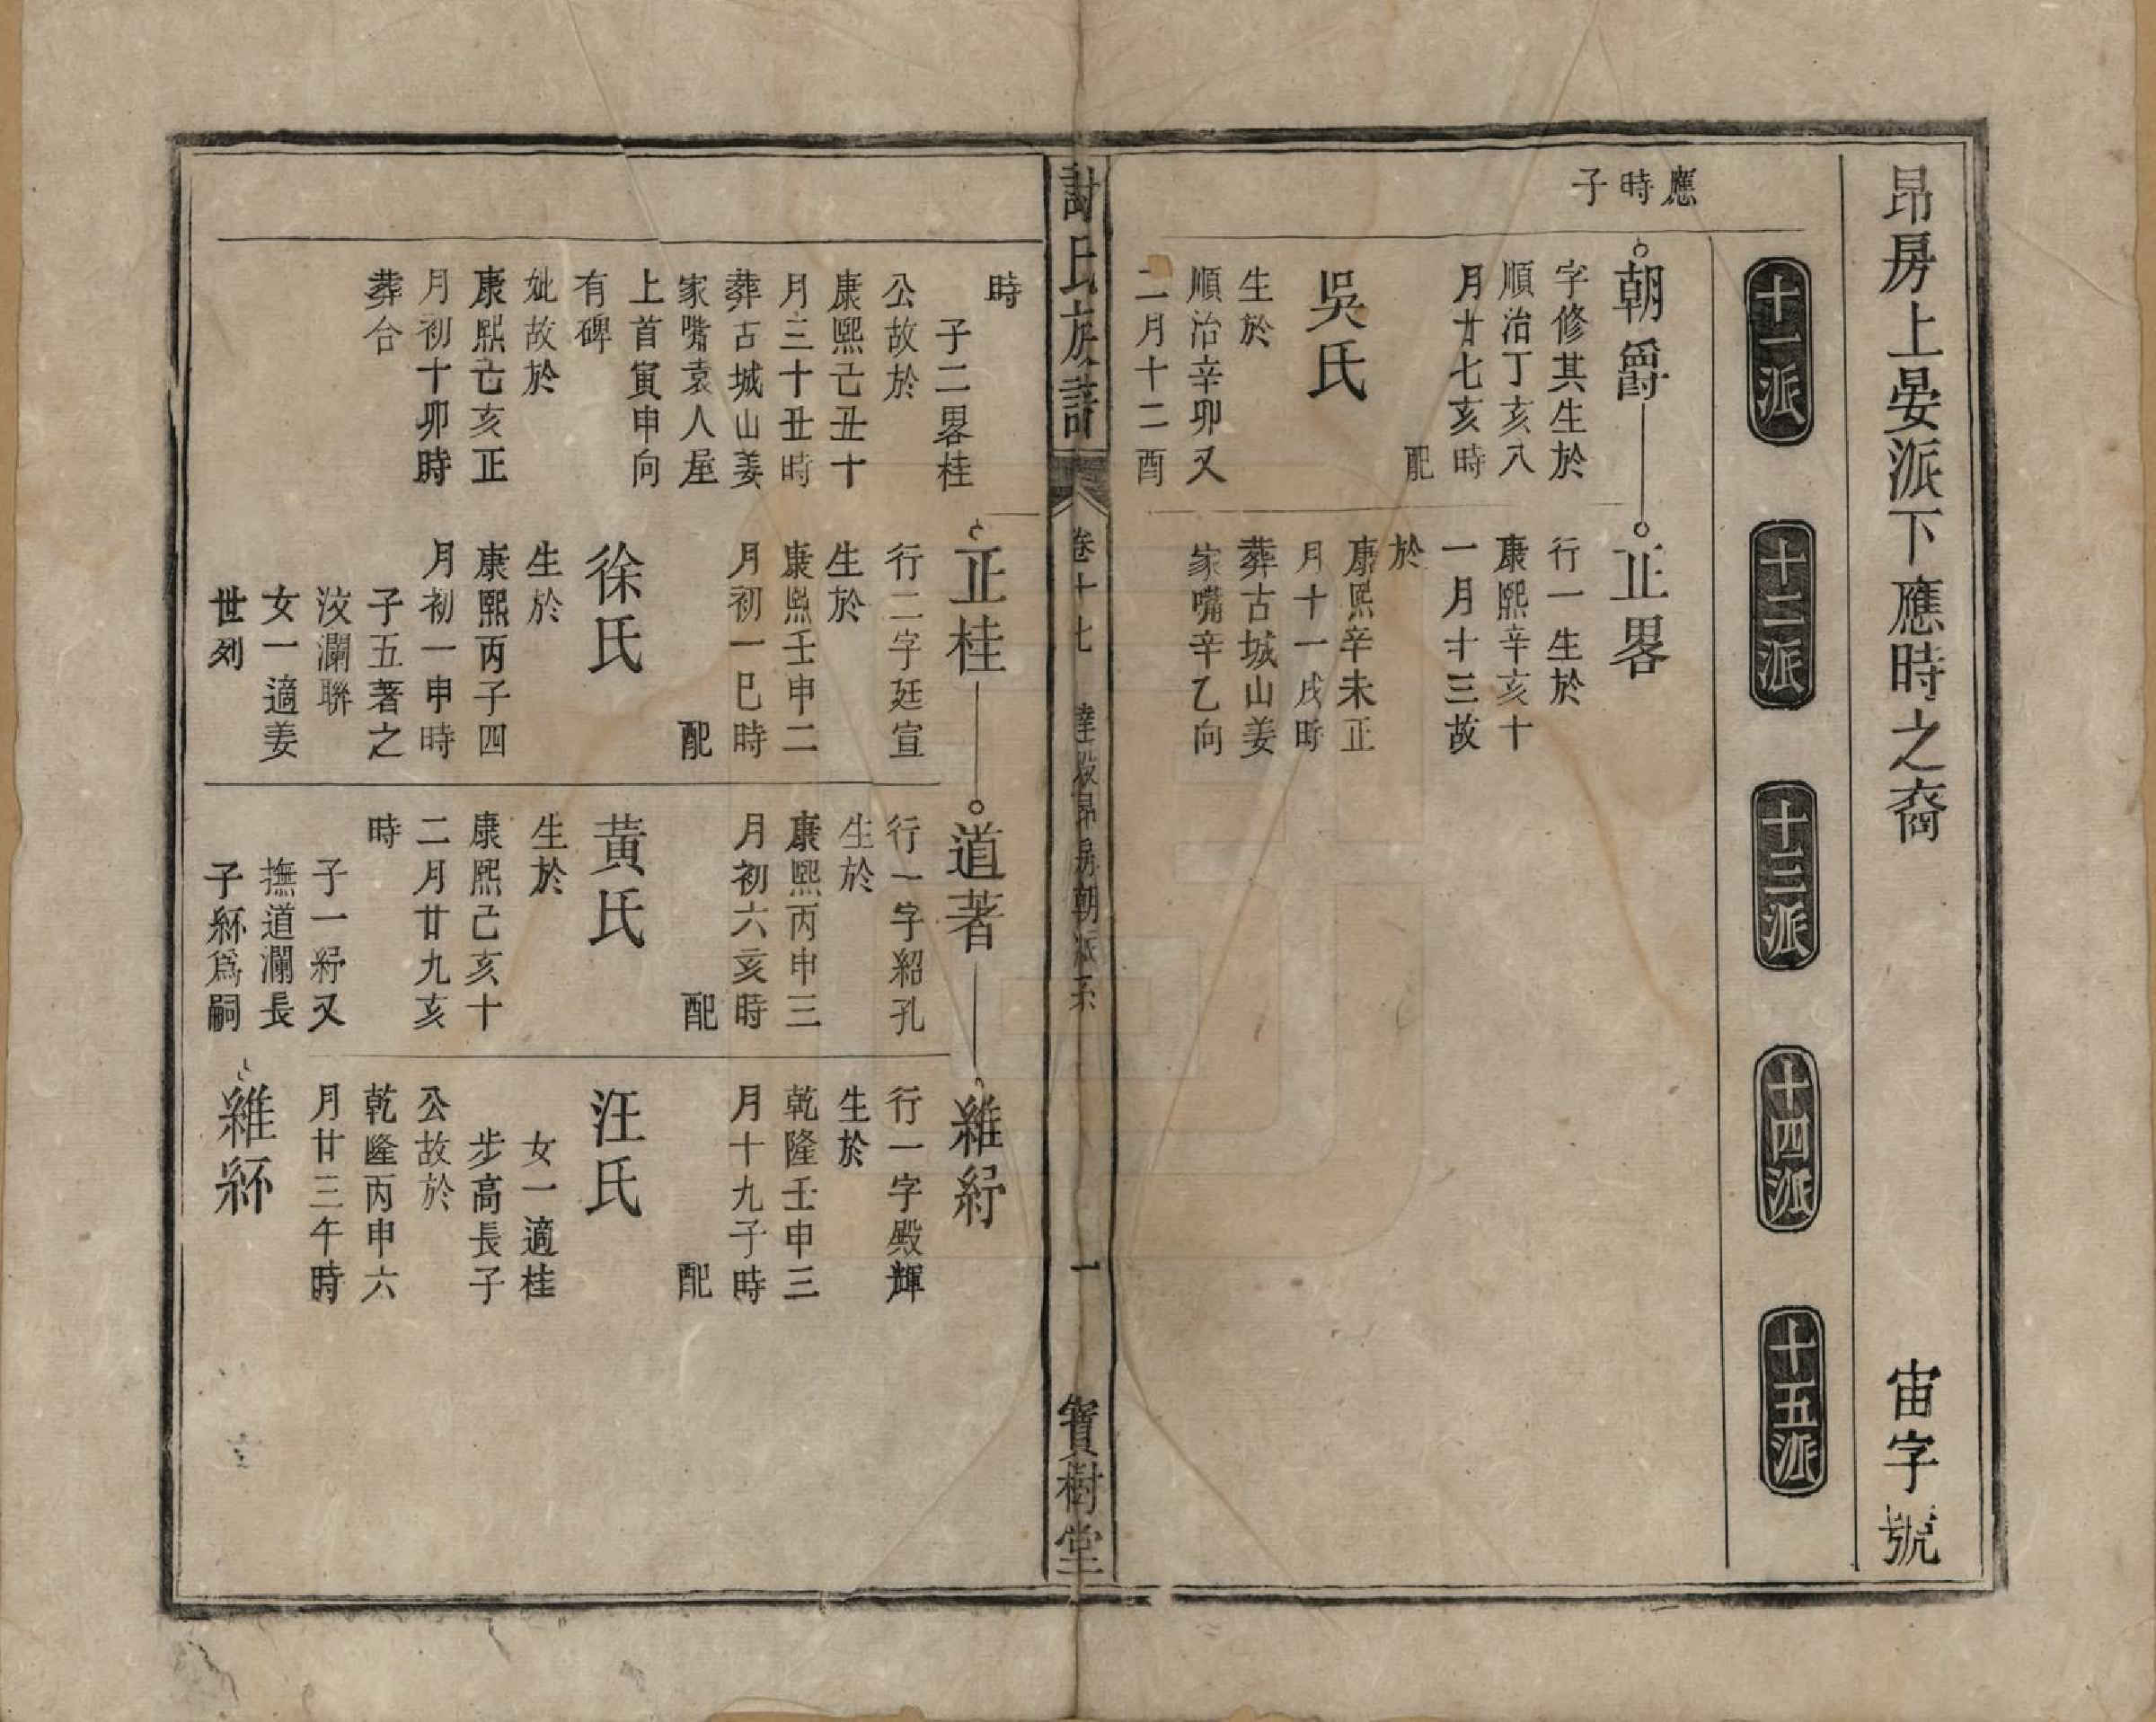 昂房上晏派下應時之裔
宙字號
十一派
十二派
十三派
十四派
十五派
應時子
朝爵
字修其生於
順治丁亥八
月廿七亥時
配
吳氏
生於
順治辛卯又
二月十二酉
正畧
行一生於
康熙辛亥十
一月十三故
於
康熙辛未正
月十一戌時
葬古城山姜
家嘴辛乙向
謝氏族譜
卷十七
達股昂房朝派系
一
寶樹堂
時
子二畧桂
公故於
康熙己丑十
月三十丑時
葬古城山姜
家嘴袁人屋
上首寅申向
有碑
妣故於
康熙己亥正
月初十卯時
葬合
正桂
行二字廷宣
生於
康熙壬申二
月初一巳時
配
徐氏
生於
康熙丙子四
月初一申時
子五著之
汶瀾聨
女一適姜
世列
道著
行一字紹孔
生於
康熙丙申三
月初六亥時
配
黃氏
生於
康熙己亥十
二月廿九亥
時
子一紆又
撫道瀾長
子紑爲嗣
維紆
行一字殿輝
生於
乾隆壬申三
月十九子時
配
汪氏
女一適桂
步高長子
公故於
乾隆丙申六
月廿三午時
維紑